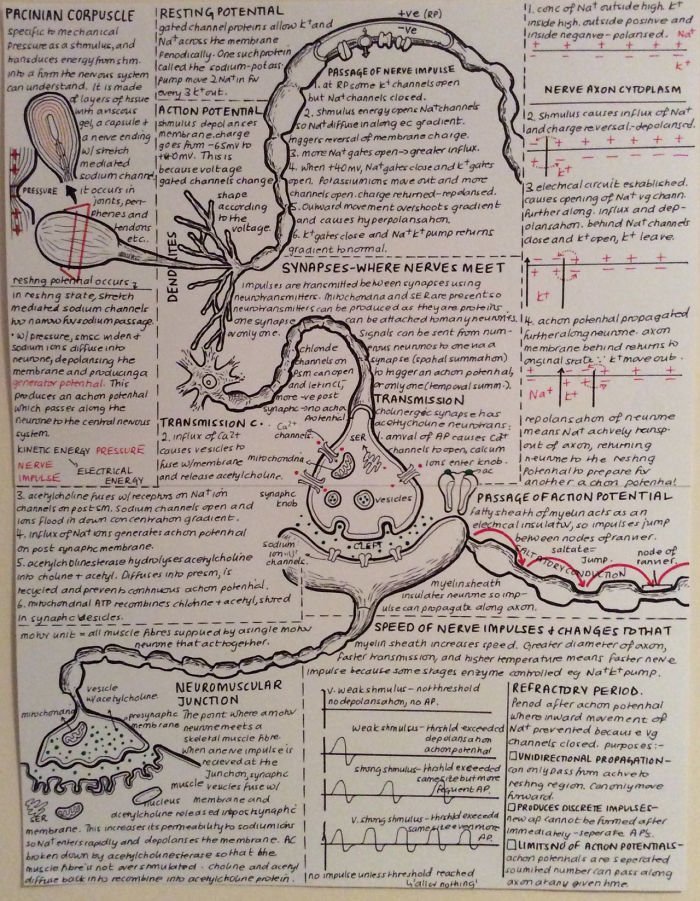 PACINIAN CORPUSCLE
specific to mechanical
pressure as a stimulus, and
transduces energy from stim.
into a form the nervous system
can understand. It is made
of layers of tissue
with a viscous
gel, a capsule +
a nerve ending
w/ stretch
mediated
sodium channel
it occurs in
joints, peri-
phenes and
tendons
etc.
PRESSURE
resting potential occurs
in resting state, stretch
mediated sodium channels
too narrow for sodium passage.
• w/ pressure, smsc widen +
sodium ions diffuse into
neurone, depolarising the
membrane and producing a
generator potential. This
produces an action potential
which passes along the
neurone to the central nervous
system.
KINETIC ENERGY PRESSURE
NERVE
IMPULSE
ELECTRICAL
ENERGY
RESTING POTENTIAL
gated channel proteins allow K+ and
Na+ across the membrane
periodically. One such protein
called the sodium-potass.
pump move 2 Na+ in for
every 3 K+ out.
ACTION POTENTIAL
stimulus depolarises
membrane. charge
goes from -65mV to
+40mV. This is
because voltage
gated channels change
shape
according
to the
voltage.
DENDRITES
+ve (RP)
-ve
PASSAGE OF NERVE IMPULSE
1. at RP some K+ channels open
but Na+ channels closed.
2. stimulus energy opens Na+ channels
so Na+ diffuse in along ec gradient.
triggers reversal of membrane charge.
3. more Na+ gates open → greater influx.
4. when +40mV, Na+ gates close and K+ gates
open. Potassium ions move out and more
channels open. charge returned - repolarised.
5. Outward movement overshoots gradient
and causes hyperpolarisation.
6. K+ gates close and Na+K+ pump returns
gradient to normal.
1. conc of Na+ outside high. K+
inside high. outside positive and
inside negative - polarised. Na+
K+
NERVE AXON CYTOPLASM
2. stimulus causes influx of Na+
and charge reversal - depolarised.
3. electrical circuit established.
causes opening of Na+ vg chann.
further along. influx and dep-
olarisation. behind Na+ channels
close and K+ open, K+ leave.
K+
4. action potential propagated
further along neurone. axon
membrane behind returns to
original state ∵ K+ move out.
Na+
K+
repolarisation of neurone
means Na+ actively transp.
out of axon, returning
neurone to the resting
potential to prepare for
another action potential
SYNAPSES - WHERE NERVES MEET
impulses are transmitted between synapses using
neurotransmitters. mitochondria and SER are present so
neurotransmitters can be produced as they are proteins.
one synapse can be attached to many neurones,
or only one.
Signals can be sent from num-
erous neurones to one via a
synapse (spatial summation)
to trigger an action potential,
or only one (temporal summ.).
chloride
channels on
PSM can open
and let in Cl,
more -ve post
synaptic → no action
potential
TRANSMISSION
cholinergic synapse has
acetylcholine neurotrans:
1. arrival of AP causes Ca2+
channels to open, calcium
ions enter knob.
TRANSMISSION C..
2. influx of Ca2+
causes vesicles to
fuse w/ membrane
and release acetylcholine.
Ca2+
channels
mitochondria
SER
synaptic
knob
vesicles
CLEFT
sodium
ion
channels.
3. acetylcholine fuses w/ receptors on Na+ ion
channels on postsm. Sodium channels open and
ions flood in down concentration gradient.
4. influx of Na+ ions generates action potential
on post synaptic membrane.
5. acetylcholinesterase hydrolyses acetylcholine
into choline + acetyl. Diffuses into presm, is
recycled and prevents continuous action potential.
6. mitochondrial ATP recombines choline + acetyl, stored
in synaptic vesicles.
PASSAGE OF ACTION POTENTIAL
fatty sheath of myelin acts as an
electrical insulator, so impulses jump
between nodes of ranvier.
saltate =
jump.
node of
ranvier.
SALTATORY CONDUCTION
myelin sheath
insulates neurone so imp-
ulse can propagate along axon.
motor unit = all muscle fibres supplied by a single motor
neurone that act together.
SPEED OF NERVE IMPULSES + CHANGES TO THAT
myelin sheath increases speed. Greater diameter of axon,
faster transmission, and higher temperature means faster nerve
impulse because some stages enzyme controlled eg Na+K+ pump.
NEUROMUSCULAR
JUNCTION
The point where a motor
neurone meets a
skeletal muscle fibre.
When a nerve impulse is
recieved at the
junction, synaptic
vesicles fuse w/
membrane and
acetylcholine released into postsynaptic
membrane. This increases its permeability to sodium ions
so Na+ enters rapidly and depolarises the membrane. AC
broken down by acetylcholinesterase so that the
muscle fibre is not over stimulated - choline and acetyl
diffuse back into recombine into acetylcholine protein.
vesicle
w/ acetylcholine.
mitochondria
presynaptic
membrane
muscle
nucleus
SER
v. weak stimulus - no threshold
no depolarisation, no AP.
weak stimulus - thrshld exceeded
depolarisation
action potential
strong stimulus - thrshld exceeded
same size but more
frequent AP.
v. strong stimulus - thrshld exceeded
same size even more
AP.
no impulse unless threshold reached
↳ 'all or nothing'
REFRACTORY PERIOD.
Period after action potential
where inward movement of
Na+ prevented because vg
channels closed. purposes:-
□ UNIDIRECTIONAL PROPAGATION -
can only pass from active to
resting region. Can only move
forward.
□ PRODUCES DISCRETE IMPULSES -
new ap cannot be formed after
immediately - seperate APs.
□ LIMITS NO OF ACTION POTENTIALS -
action potentials are seperated
so limited number can pass along
axon at any given time.